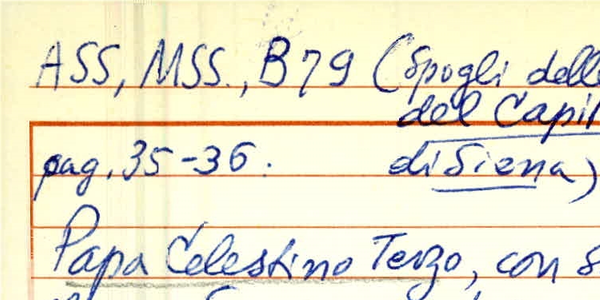 ASS, MSS., B79 (Spogli delle
del Capi
pag. 35-36. di Siena)
Papa Celestino Terzo, con